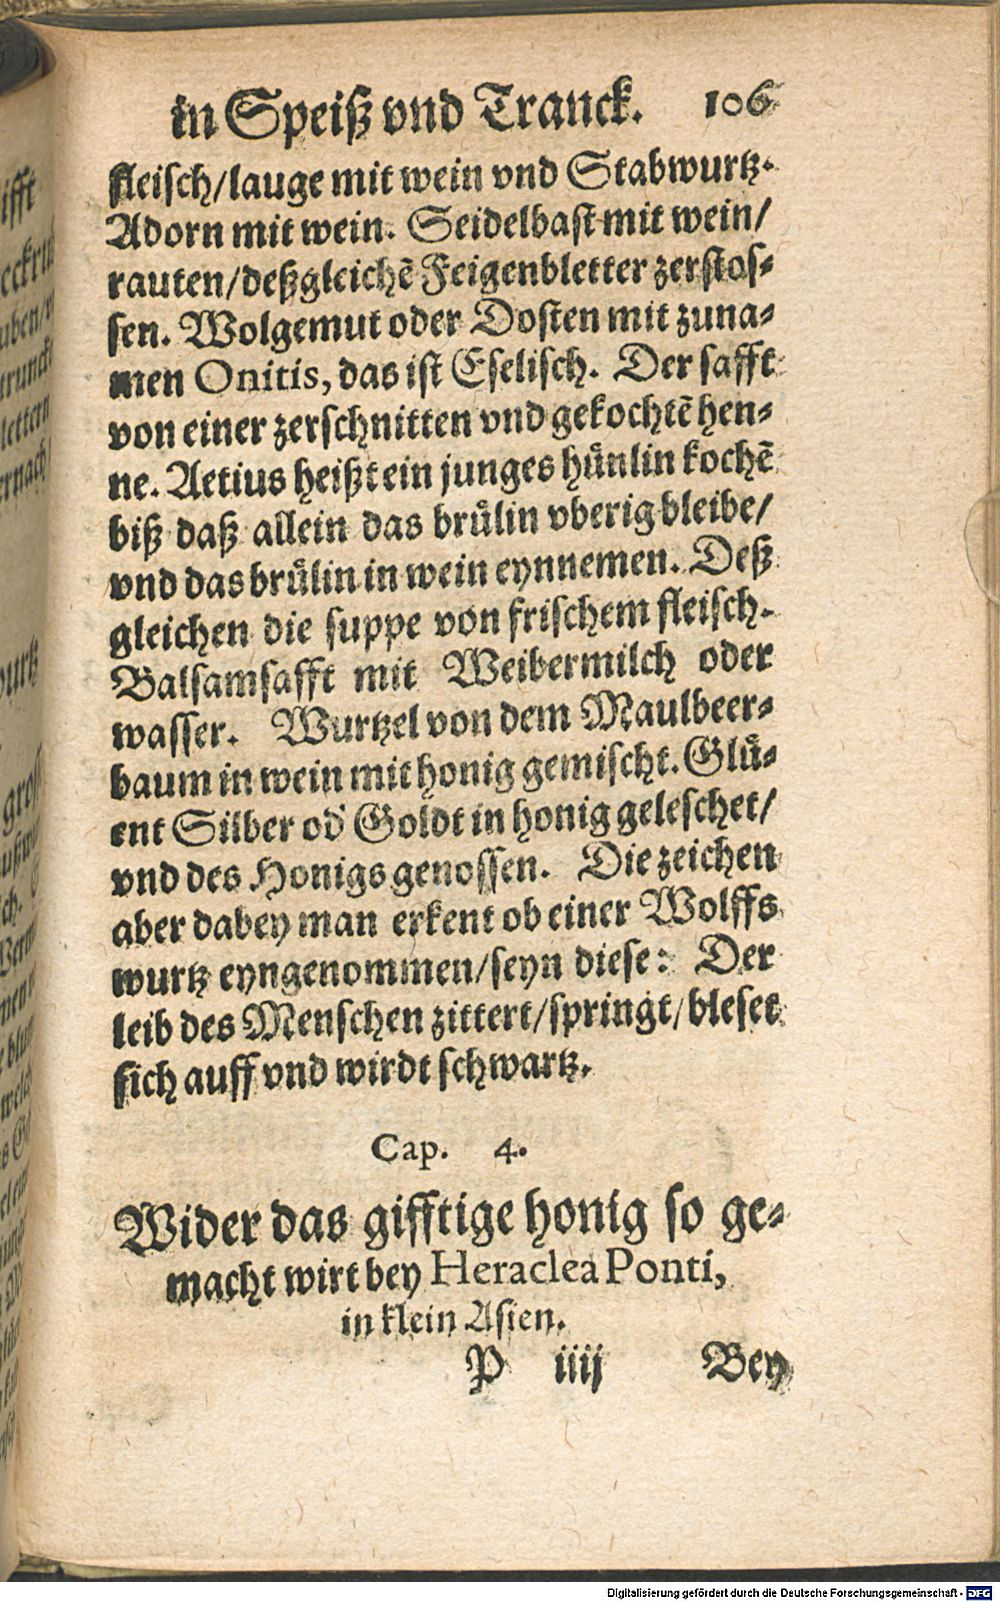 in Speiß vnd Tranck. 106
fleisch/lauge mit wein vnd Stabwurtz.
Adorn mit wein. Seidelbast mit wein/
rauten/deßgleichē Feigenbletter zerstos⸗
sen. Wolgemut oder Dosten mit zuna⸗
men Onitis, das ist Eselisch. Der safft
von einer zerschnitten vnd gekochtē hen⸗
ne. Aetius heißt ein junges hůnlin kochē
biß daß allein das brůlin vberig bleibe/
vnd das brůlin in wein eynnemen. Deß
gleichen die suppe von frischem fleisch.
Balsamsafft mit Weibermilch oder
wasser. Wurtzel von dem Maulbeer⸗
baum in wein mit honig gemischt. Glů⸗
ent Silber od' Goldt in honig geleschet/
vnd des Honigs genossen. Die zeichen
aber dabey man erkent ob einer Wolffs
wurtz eyngenommen/seyn diese: Der
leib des Menschen zittert/springt/bleset
sich auff vnd wirdt schwartz.
Cap. 4.
Wider das gifftige honig so ge⸗
macht wirt bey Heraclea Ponti,
in klein Asien.
P iiij Bey
Digitalisierung gefördert durch die Deutsche Forschungsgemeinschaft - DFG